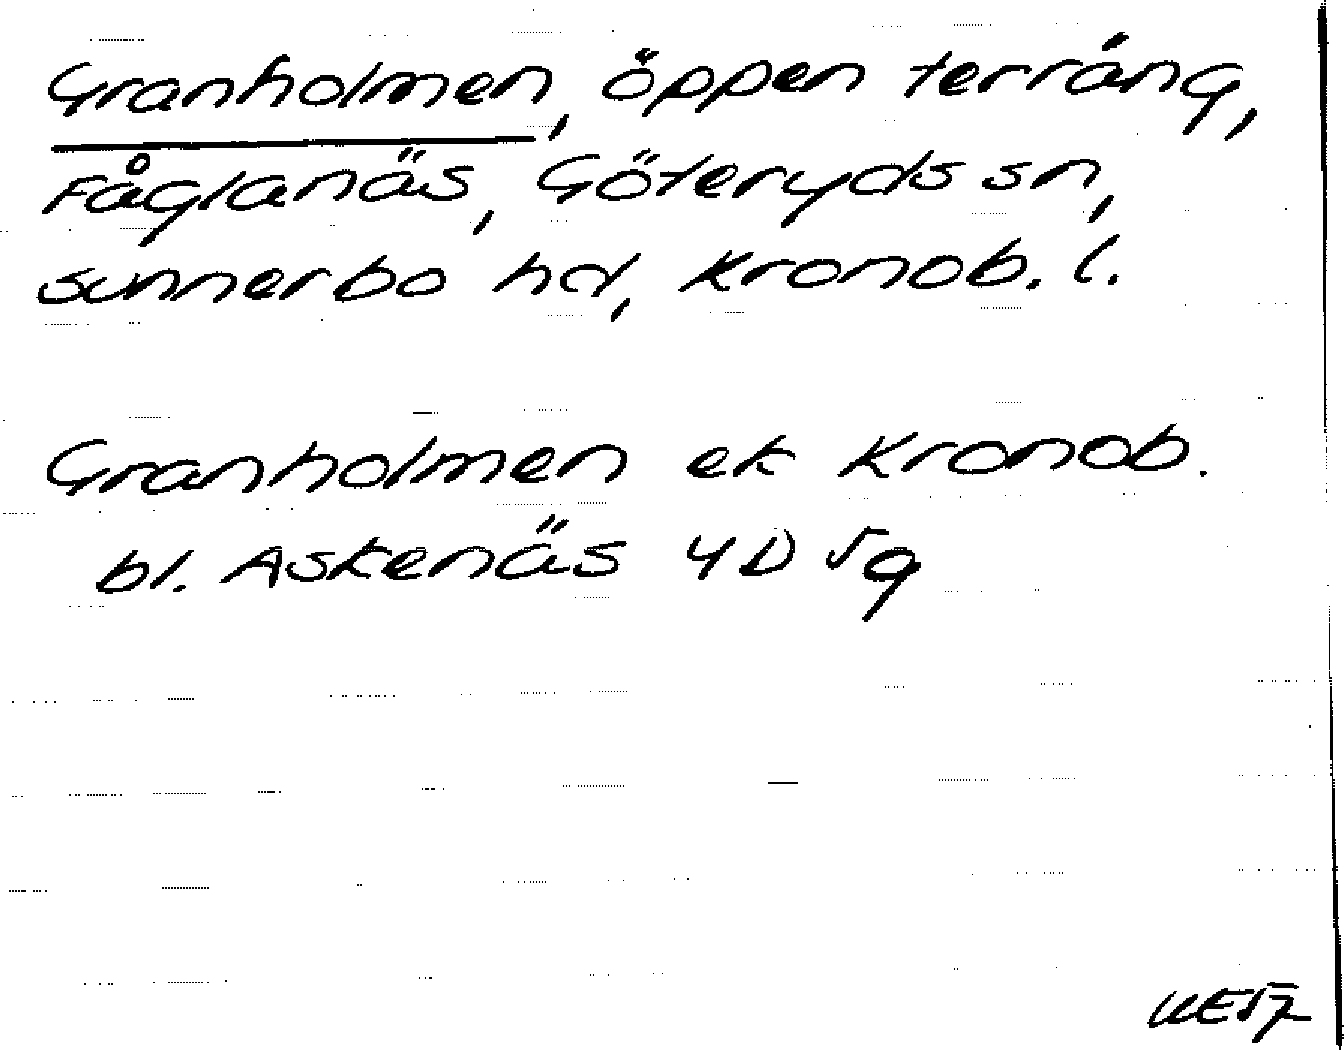 Granholmen, öppen terräng,
Fåglanäs, Göteryds sn,
sunnerbo hd, Kronob. l.
Granholmen ek Kronob.
bl. Askenäs 4D 5g